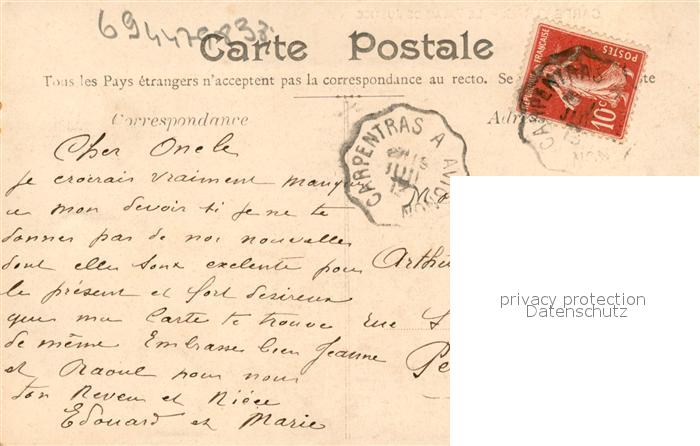 694479833
Carte Postale
Tous les Pays étrangers n'acceptent pas la correspondance au recto. Se
Correspondance
Cher Oncle
Je croirais vraiment manquer
a mon devoir si je ne te
donner pas de nos nouvelles
dont elles sont exelente pour
le présent et fort desireux
que ma Carte te trouve
de même Embrasse bien Jeanne
et Raoul pour nous
ton Neveu et Nièce
Edouard et Marie
Arthu
rue
CARPENTRAS A AVIGNON
REPUBLIQUE FRANÇAISE
POSTES
10c
CARPENTRAS
privacy protection
Datenschutz